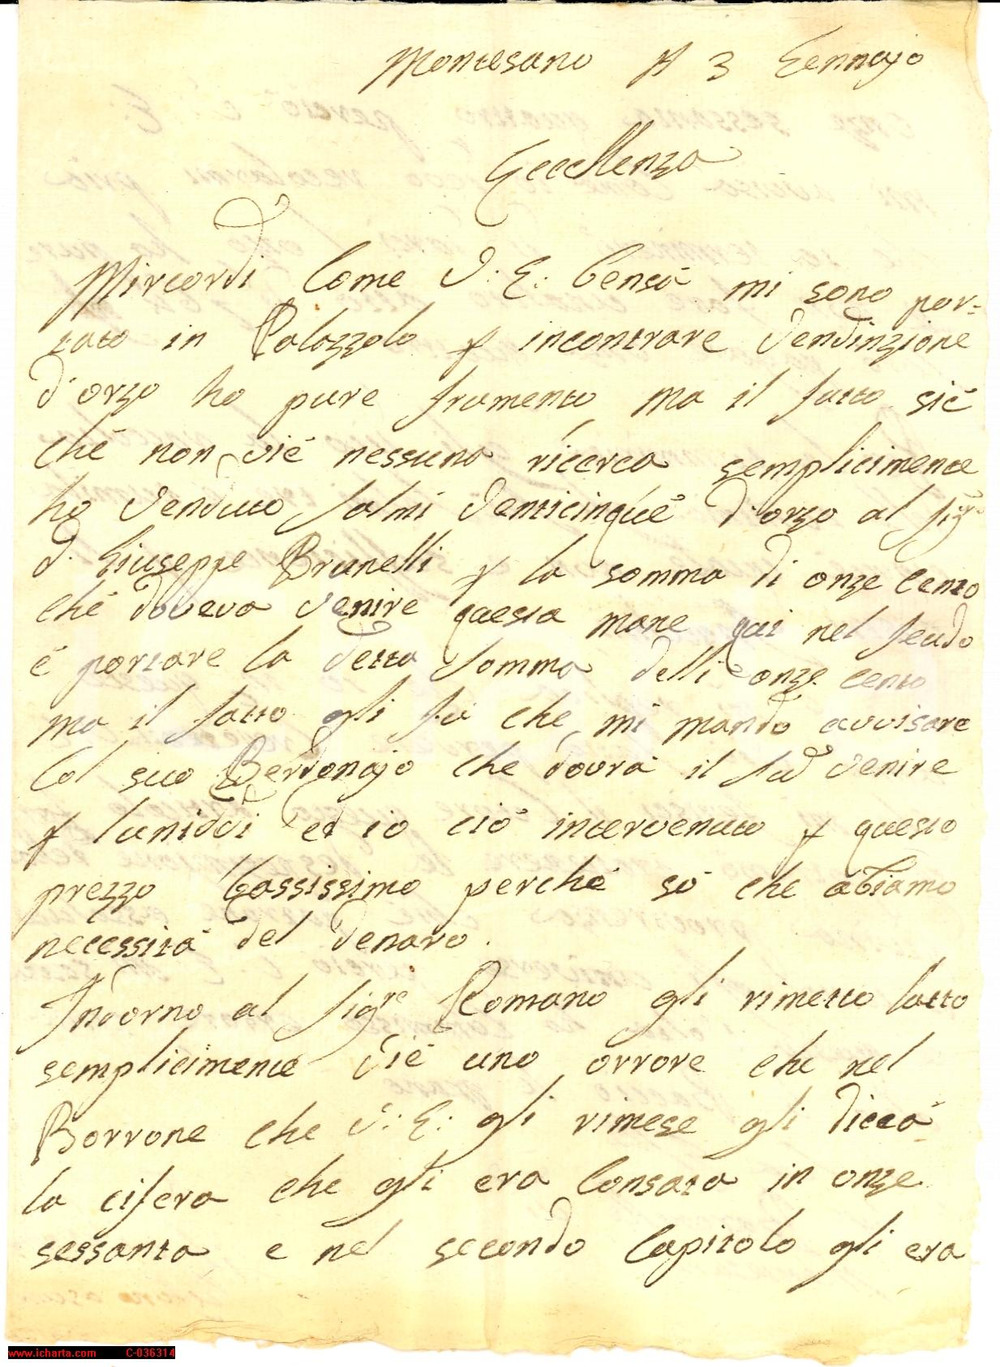 Montesano A 3 Gennajo
Eccellenza
Mircordi Come V: E: Censa mi sono por=
tato in Palazzolo p incontrare Vendinzione
d'orzo ho pure frumento, ma il fatto sié
ché non vié nessuna ricerca semplicimente
ho Venduto salmi Venticinqué d'orzo al Sigr
d. Giuseppe Brunelli p la somma di onze Cento
ché doveva venire questa mane qui nel feudo
é portare la detta somma delli onze cento
ma il fatto gli fu che, mi mandò avvisare
Col suo Berdonajo che dovrà il venire
p luniddi ed io ciò intervenuto p questo
prezzo bassissimo perché só che abiamo
necessità del denaro.
Indorno al Sigre Romano gli rimetto latto
semplicimente vié uno orrore che nel
Borrone che V: E: gli rimese gli dicea
la cifera che gli era Consata in onze
sessanta e nel secondo Capitolo gli era
www.icharta.com C-036314